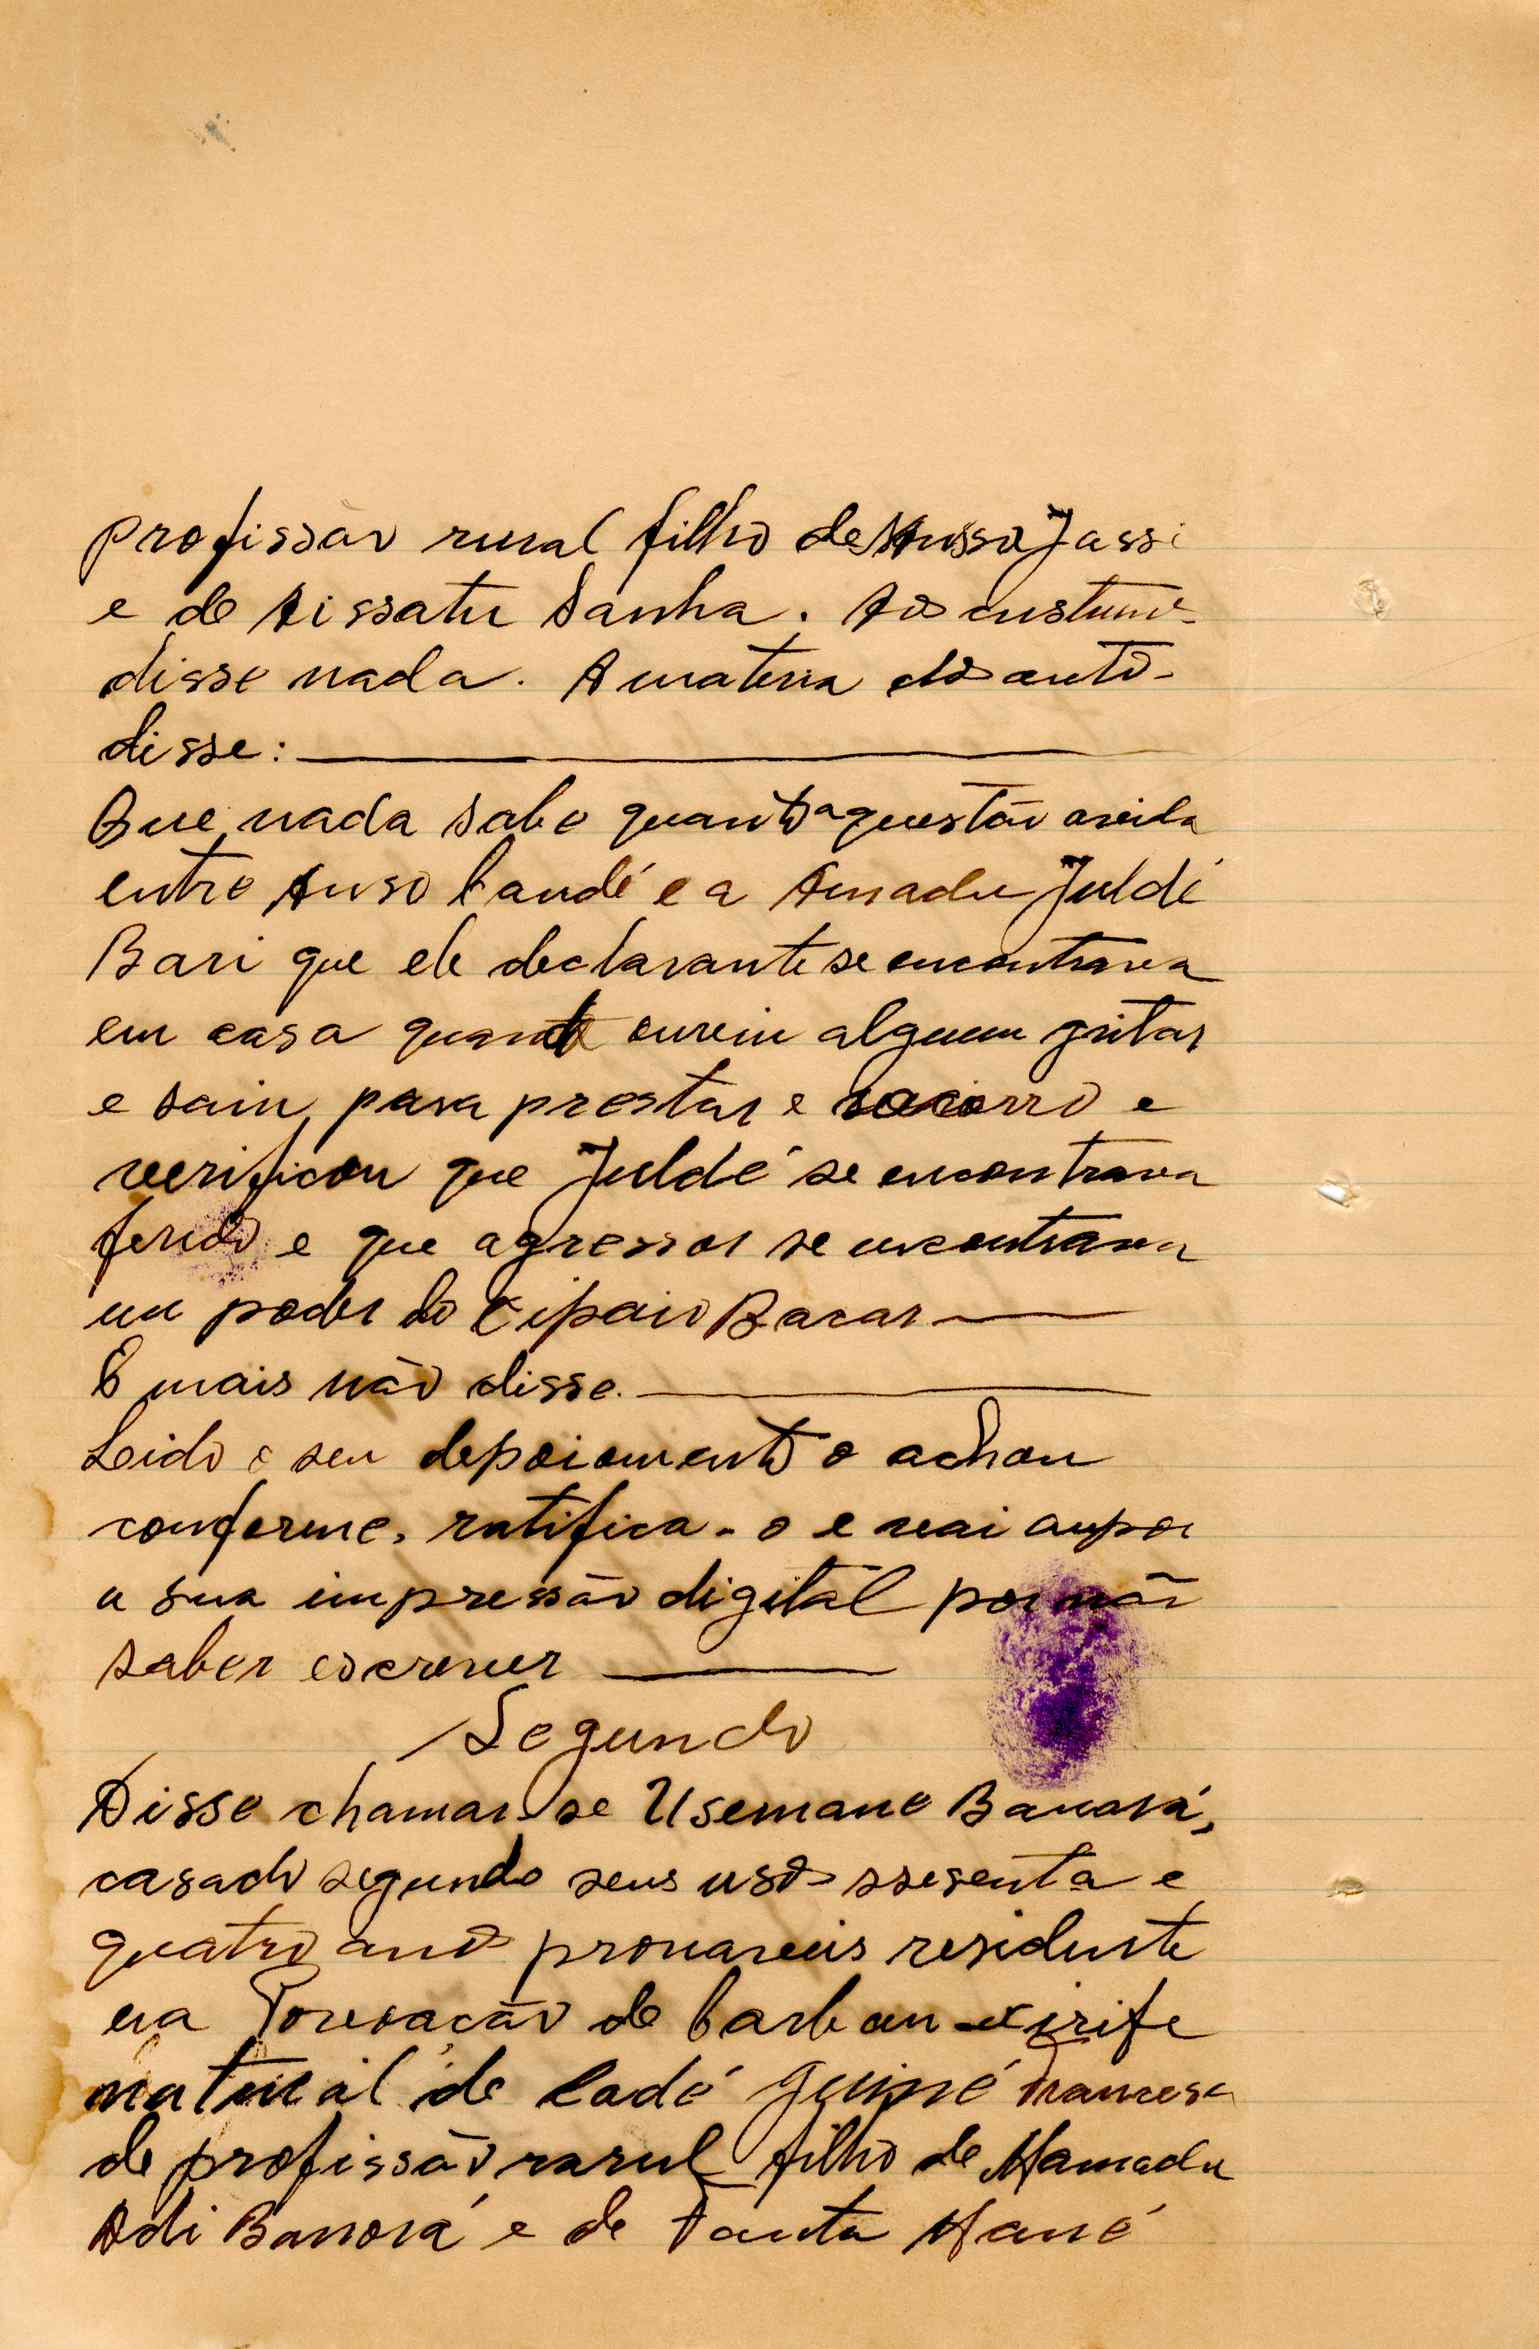 profissão rural filho de Mussa Jassi
e de Aissatu Sanha. Aos custume
disse nada. A materia dos auto-
disse:
Que nada sabe quanto a questão avida
entre Auso Candé e a Amadu Juldé
Bari que ele declarante se encontrava
em casa quando ouviu alguem gritar
e saiu para prestar e socorro e
verificou que Juldé se encontrava
ferido e que agressor se encontrava
em poder do Cipaio Bacar
E mais não disse.
Leido o seu depoiomento o achou
conforme, ratifica-o e vai aupor
a sua impressão digital por não
saber escrever
Segundo
Disse chamar-se Usemane Banorá,
casado segundo seus usos ssesenta e
quatro anos provaveis residente
na Povoação de Carbam-xirife
natural de Cadé Guiné Francesa
de profissão rarul filho de Mamadu
Adi Banorá e de Fanta Mané